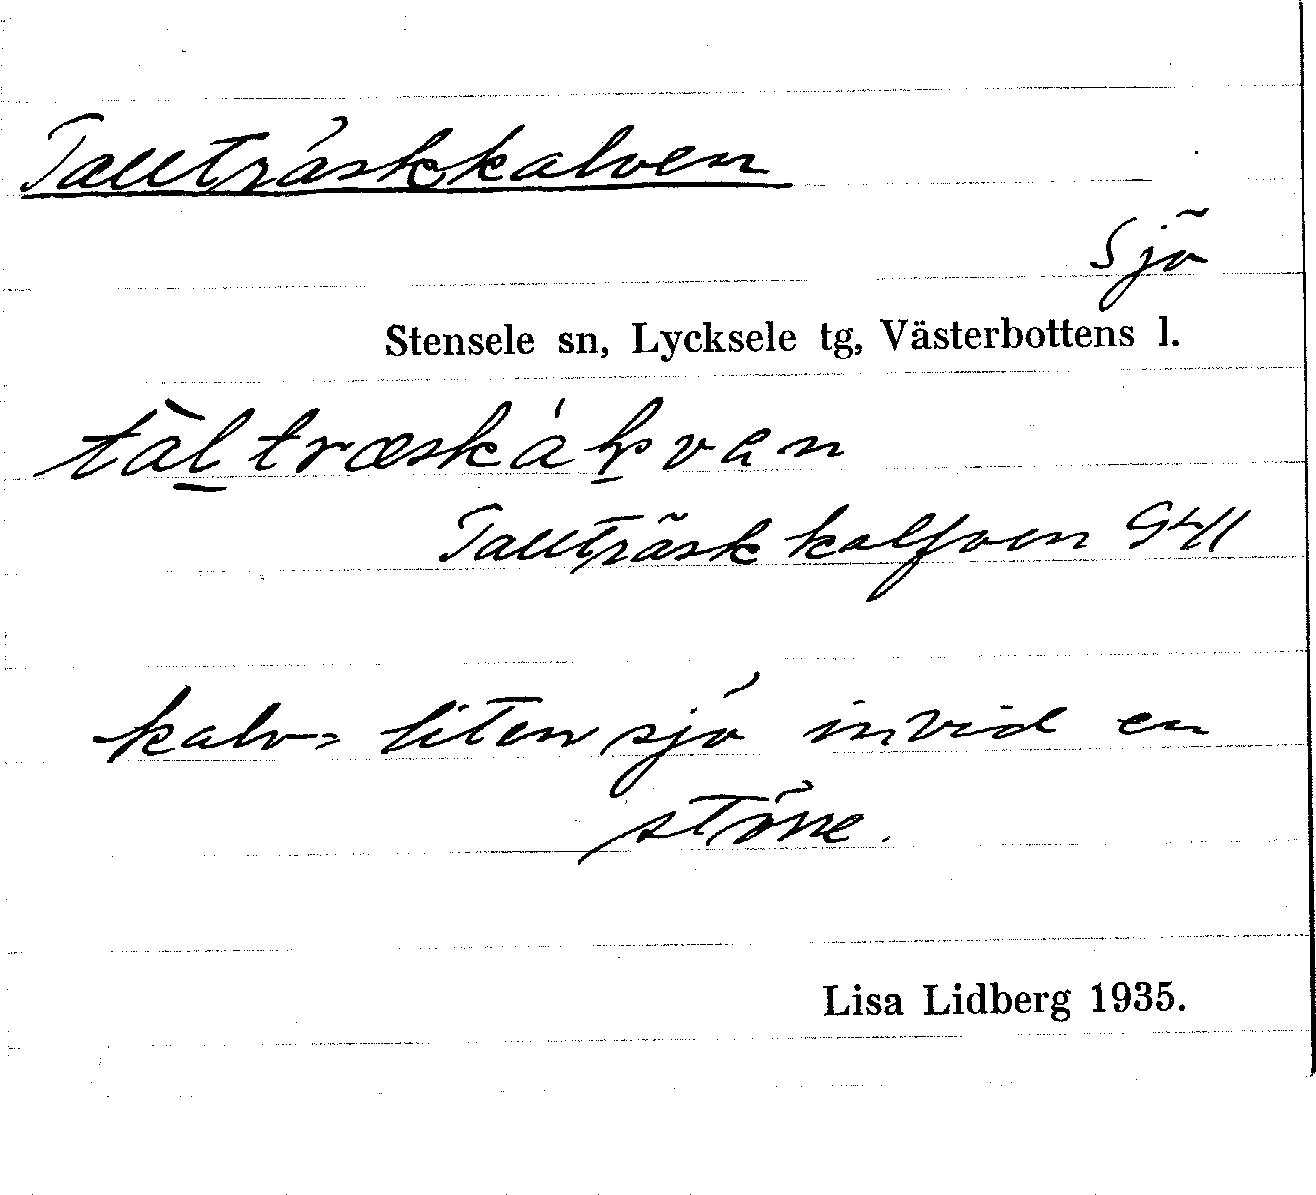 Tallträskkalven
Sjö
Stensele sn, Lycksele tg, Västerbottens l.
Tallträskkalfven GLI
kalv = liten sjö invid en
större.
Lisa Lidberg 1935.